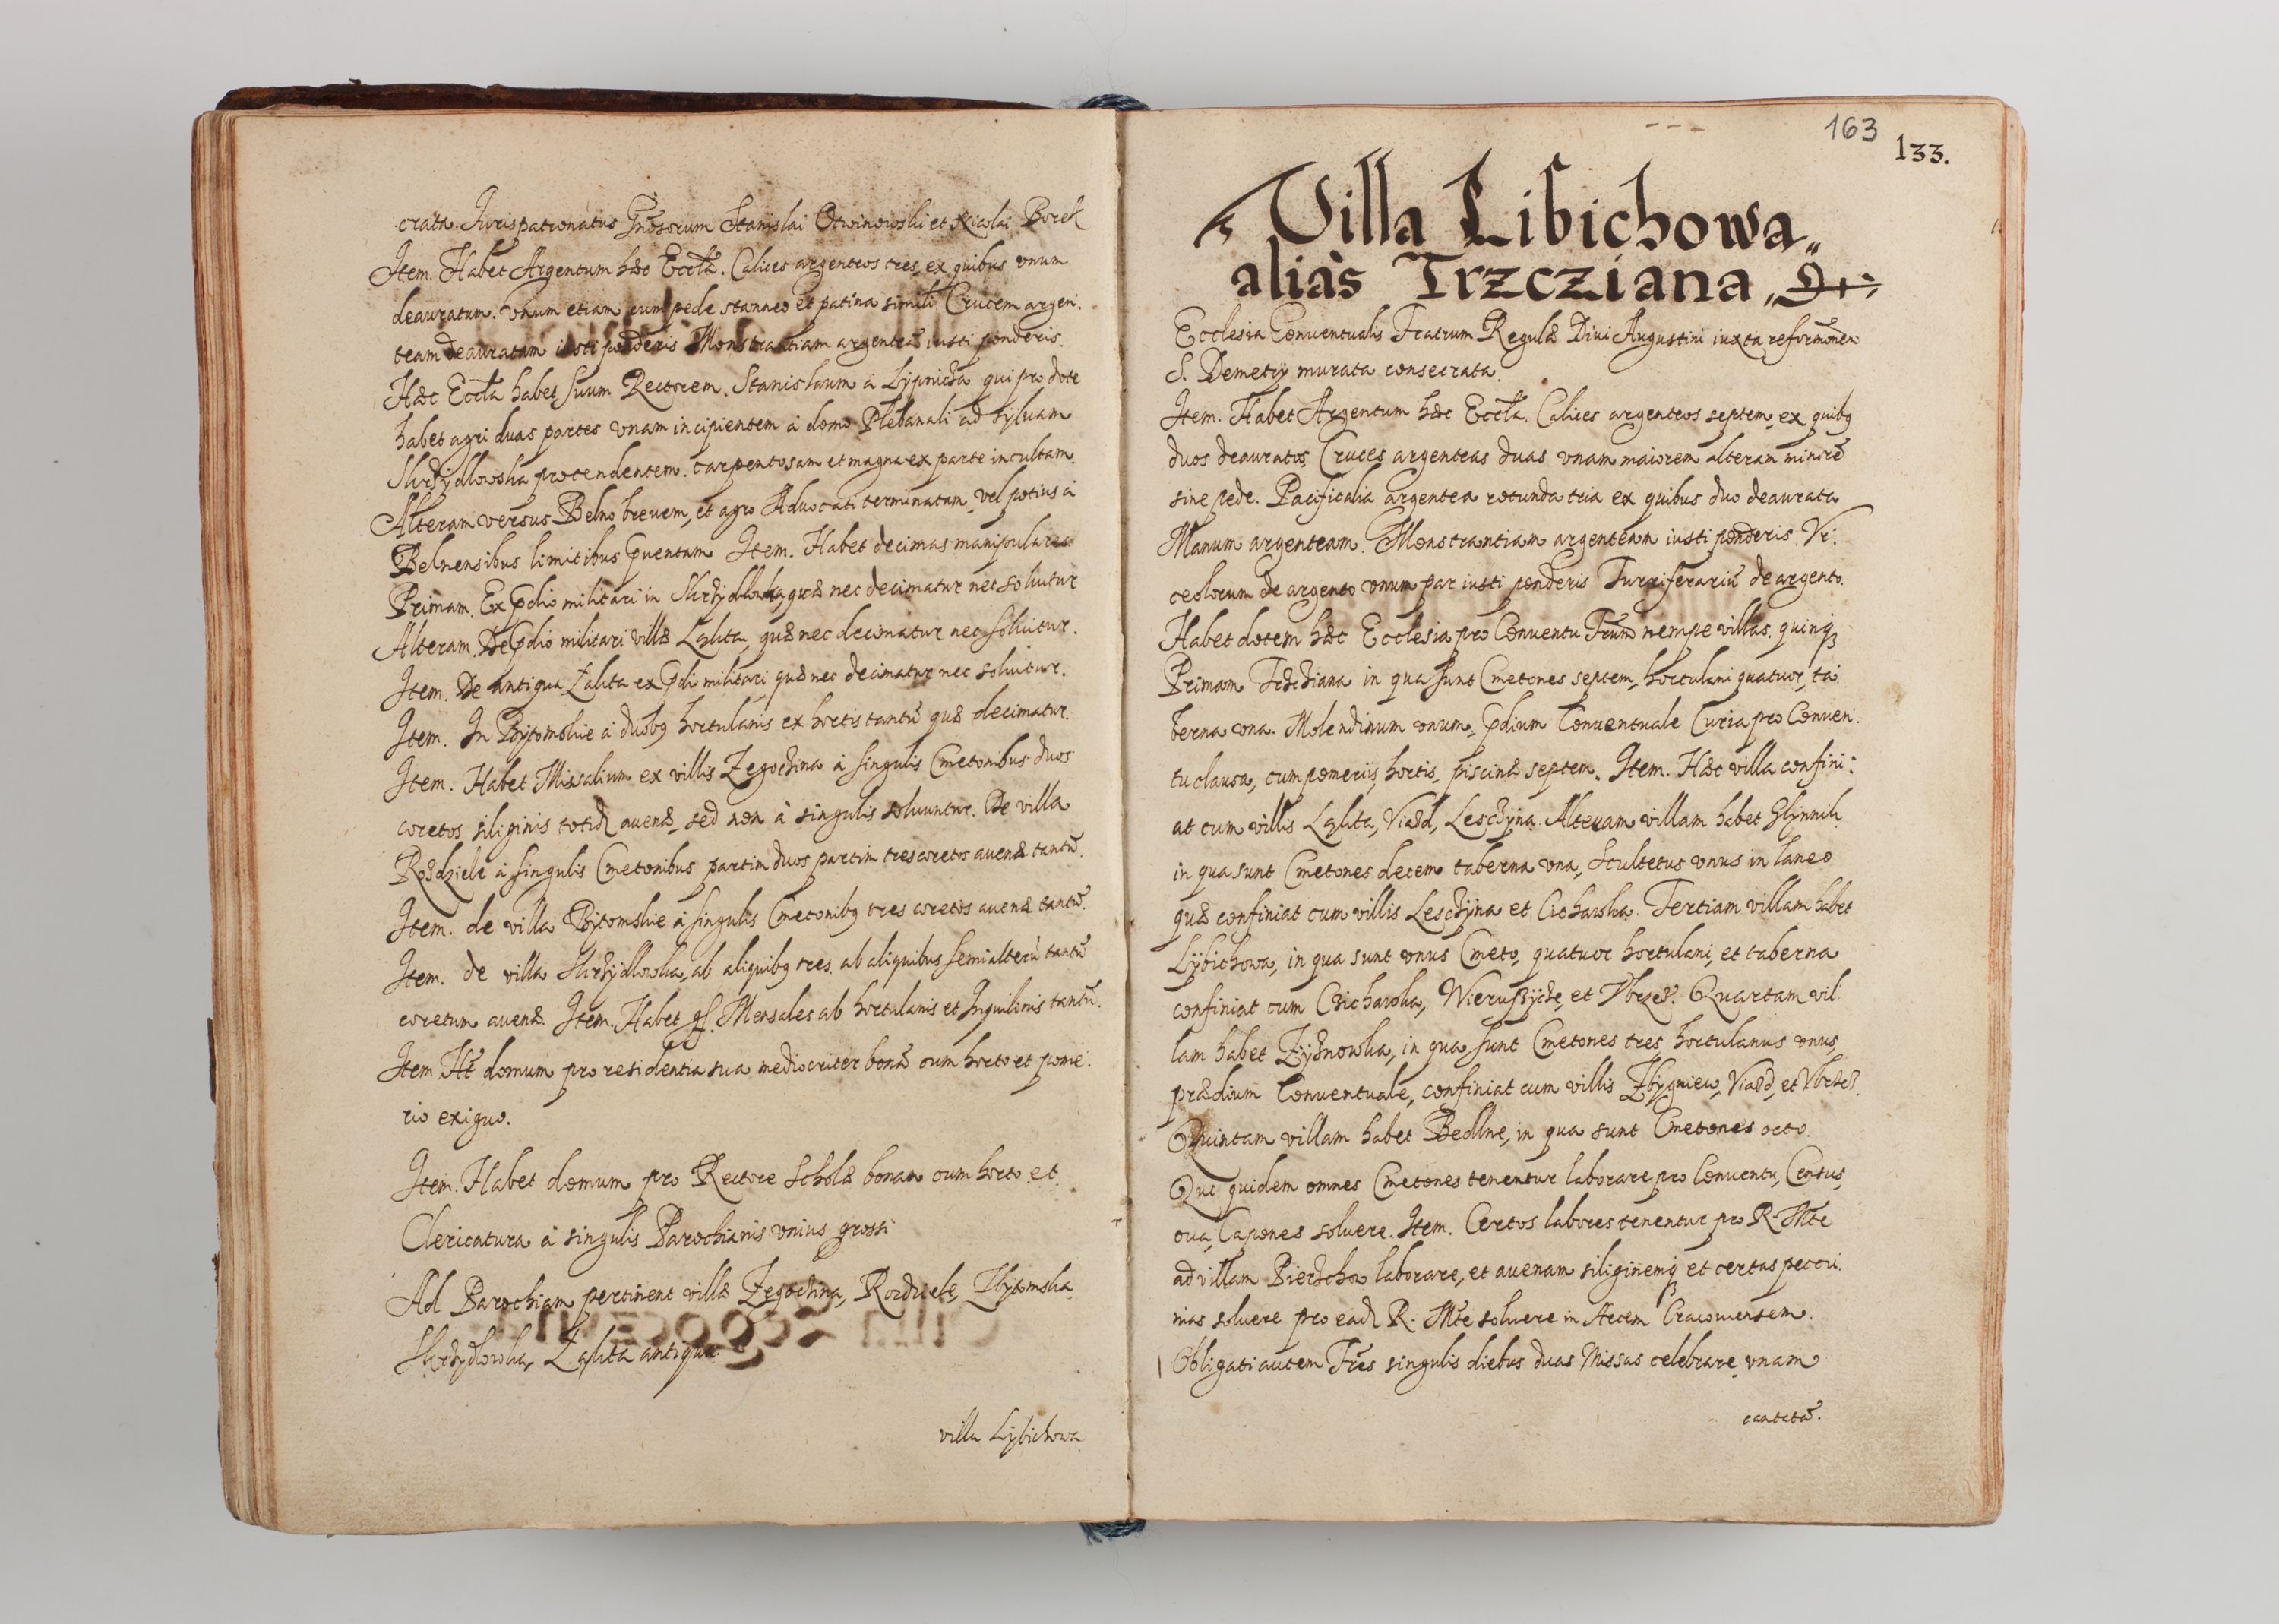 crata. Jurispatronatus Gnosorum Stanislai Otwinowski et Nicolai Borek
Item. Habet Argentum hæc Eccla. Calices argenteos tres, ex quibus vnum
deauratum. Vnum etiam cum pede stanneo et patina simili. Crucem argen.
team deauratam iusti ponderis Monstrantiam argenteā iusti ponderis.
Hæc Eccla habet suum Rectorem. Stanislaum a Lypnicza qui pro dote
habet agri duas partes vnam incipientem à domo Plebanali ad sylvam
Skrzydlowska protendentem. carpentosam et magna ex parte incultam.
Alteram versus Belno brevem, et agro Advocati terminatam, vel potius à
Belnensibus limitibus Item. Habet decimas manipulares
Primam. Ex pdio militari in Skrzydlowka, quæ nec decimatur nec soluitur
Alteram. De pdio militari villæ Ląkta, quæ nec decimatur nec soluitur.
Item. De antiqua Łąkta ex pdi militari quæ nec decimatur nec soluitur.
Item. In Bytomskie à duobq hortulanis ex hortis tantū quæ decimatur.
Item. Habet Missalium ex villis Zegoczina à singulis Cmetonibus duos
coretos siliginis totiđ auenæ, sed non à singulis soluuntur. De villa
Rozdziele à singulis Cmetonibus partim duos partim tres coretos auenæ tantū.
Item. de villa Bytomskie à singulis Cmetonibq tres coretos auenæ tantū.
Item. de villa Skrzydlowka, ab aliquibq tres. ab aliquibus semialterū tantū
coretum auenæ. Item. Habet gs. Mensales ab hortulanis et Inquilinis tantū.
Item Ht domum pro residentia sua mediocriter bonā cum horto et pome.
rio exiguo.
Item. Habet domum pro Rectore Scholæ bonam cum horto et.
Clericatura à singulis Parochianis vnius grossi
Ad Parochiam pertinent villæ Zegoczina, Rozdziele, Zbytomska
Skrzydlowka, Łąkta antiqua.
villa Lybichowa
163
133.
Villa Libichowa
aliàs Trzcziana
Ecclesia Conuentualis Fratrum Regulæ Diui Augustini iuxta reformōnem
S. Demetrij murata consecrata.
Item. Habet Argentum hæc Eccla. Calices argenteos septem, ex quibq
duos deauratos. Cruces argenteas duas vnam maiorem alteram minorē
sine pede. Pacificalia argentea rotunda tria ex quibus duo deaurata
Manum argenteam. Monstrantiam argenteam iusti ponderis. Vr.
ceolorum de argento vnum par iusti ponderis Turriferariū de argento.
Habet dotem hæc Ecclesia pro Conuentu Frūm nempe villas. quinq
Primam Trzcziana in qua sunt Cmetones septem, hortulani quatuor, ta
berna vna. Molendinum vnum, pdium Conuentuale Curia pro Conuen.
tu clausa, cum pomerijs, hortis, piscinæ septem. Item. Hæc villa confini:
at cum villis Ląkta, Viazd, Lesczyna. Alteram villam habet Glynnik.
in qua sunt Cmetones decem taberna vna, Scultetus vnus in laneo
quæ confiniat cum villis Lesczyna et Cichawka. Tertiam villam habet
Lybichowa, in qua sunt vnus Cmeto, quatuor hortulani, et taberna
confiniat cum Czichawka, Wieruszycze, et Vbrzez. Quartam vil
lam habet Zyznowka, in qua sunt Cmetones tres, hortulanus vnus,
prædium Conuentuale, confiniat cum villis Zbygniew, Viazd, et Vbrzez.
Quintam villam habet Bedlne, in qua sunt Cmetones octo.
Qui quidem omnes Cmetones tenentur laborare pro Conuentu, Census,
oua, Capones soluere. Item. Certos labores tenentur pro R. Mte
ad villam Pierzchow laborare, et auenam siliginemq et certas peccu.
nias soluere pro eađ R. Mte soluere in Arcem Cracouiensem.
Obligati autem Fres singulis diebus duas Missas celebrare vnam
cantatā.